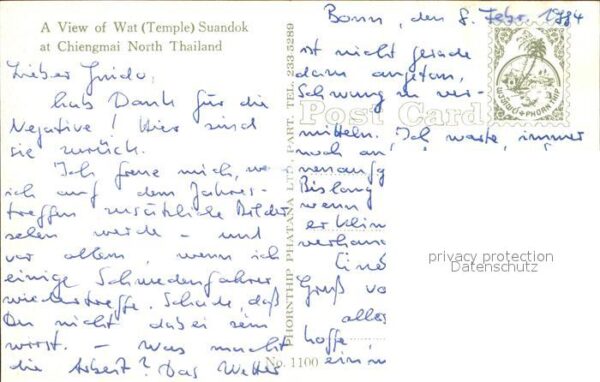 A View of Wat (Temple) Suandok
at Chiengmai North Thailand
Lieber Guido,
hab Dank für die
Negative! Hier sind
sie zurück.
Ich freue mich, wo
ich auf dem Jahres-
treffen zusätzliche Bilder
sehen werde - und
vor allem, wenn ich
einige Schwedenfahrer
wiedertreffe. Schade, daß
Du nicht dabei sein
wirst. - Was macht
die Arbeit? Das Wetter
PHORNTHIP PHATANA LTD., PART. TEL. 233 5289
No. 1100
Bonn, den 8. Febr. 1984
ist nicht gerade
dazu angetan,
Schwung zu ver-
Post Card
mitteln. Ich warte immer
noch an
Bislang
wenn
er klin
verhand
Gruß vo
alles
hoffe,
PHORN THIP
privacy protection
Datenschutz